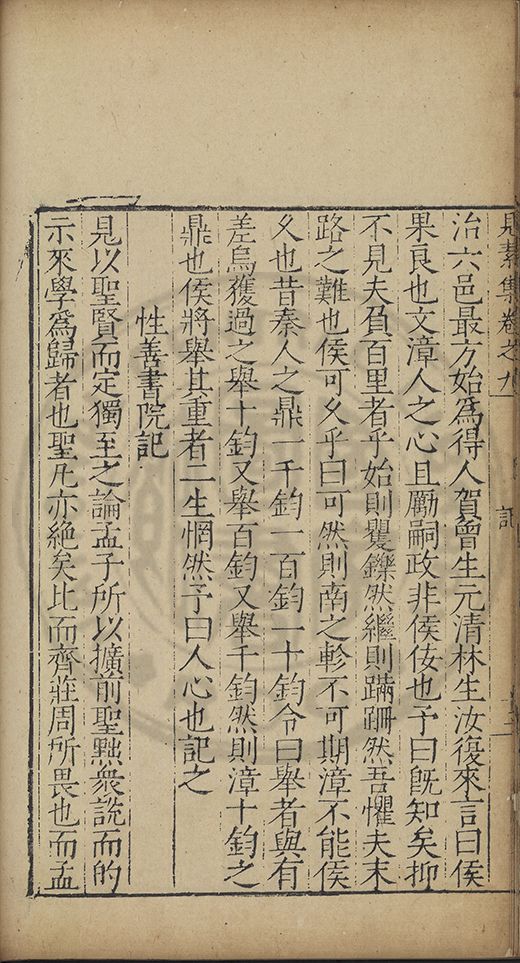 見素集卷之九 記
治六邑最方始爲得人賀曾生元清林生汝復來言曰侯
果良也文漳人之心且勵嗣政非侯佞也予曰旣知矣抑
不見夫負百里者乎始則矍鑠然繼則蹣跚然吾懼夫末
路之難也侯可乆乎曰可然則南之軫不可期漳不能侯
乆也昔秦人之鼎一千鈞一百鈞一十鈞令曰舉者與有
差烏獲過之舉十鈞又舉百鈞又舉千鈞然則漳十鈞之
鼎也侯將舉其重者二生惘然予曰人心也記之
性善書院記
見以聖賢而定獨至之論孟子所以擴前聖黜衆說而的
示來學爲歸者也聖凡亦絕矣比而齊莊周所畏也而孟